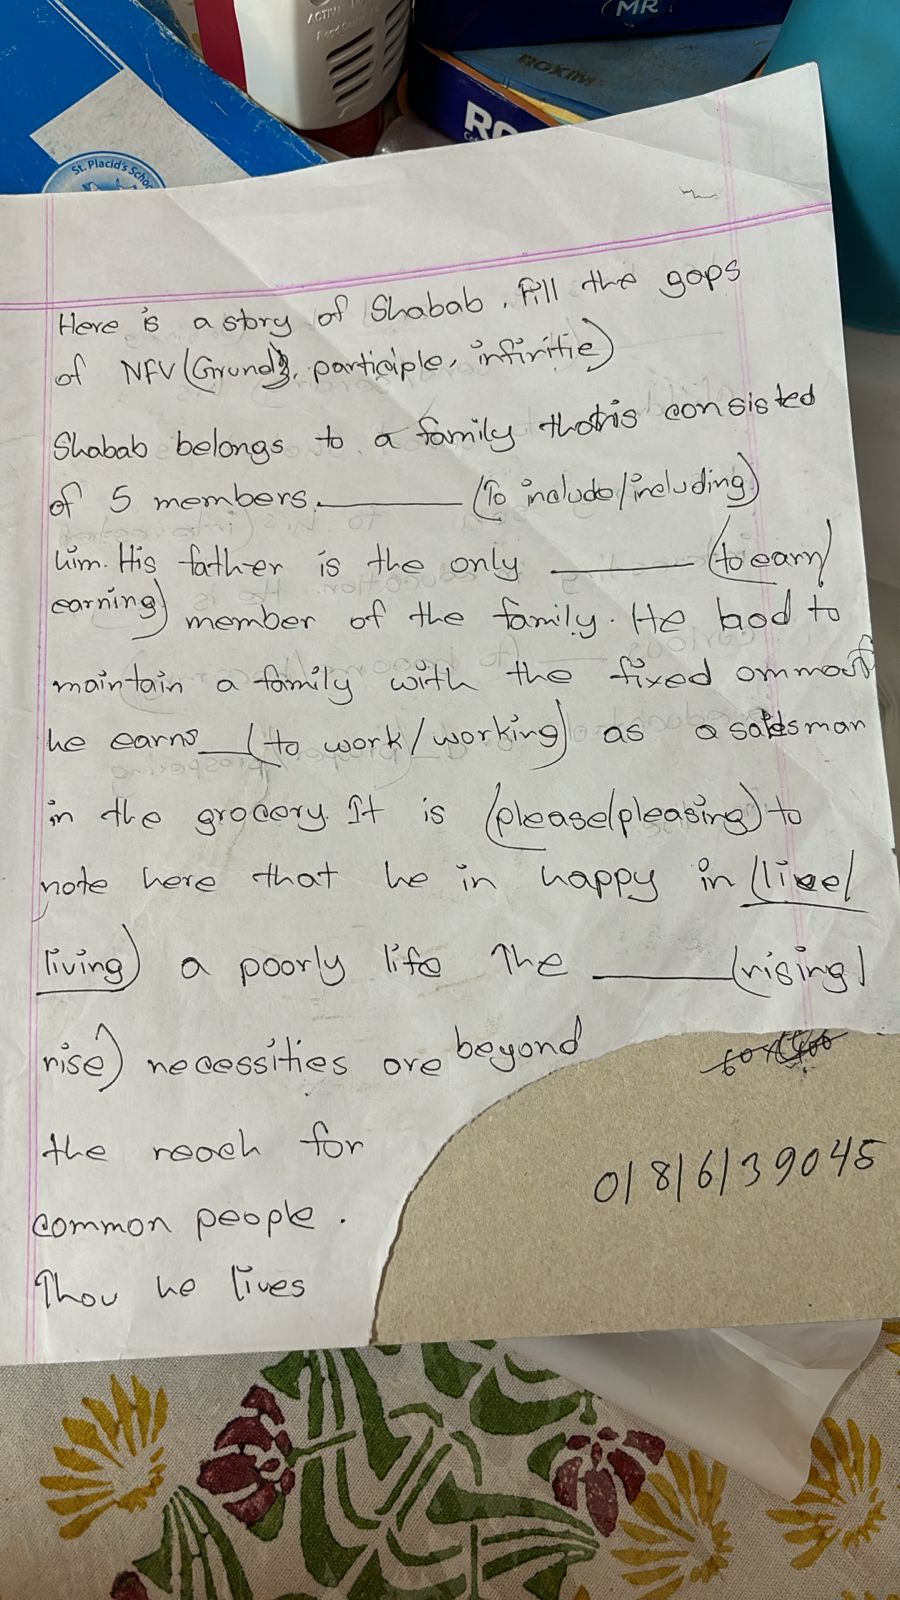 MR
ROXIM
RO
St. Placid's School
Here is a story of Shabab. Fill the gaps
of NFV (Grund, participle, infiritie)
Shabab belongs to a family that is consisted
of 5 members. ______ (To include/including)
him. His father is the only ______ (to earn/
earning) member of the family. He had to
maintain a family with the fixed
he earns __ (to work/working) as a salesman
in the grocery. It is (please/pleasing) to
note here that he in happy in (live/
living) a poorly life The ______ (rising/
rise) necessities are beyond
the reach for
common people.
Thou he lives
01816139045